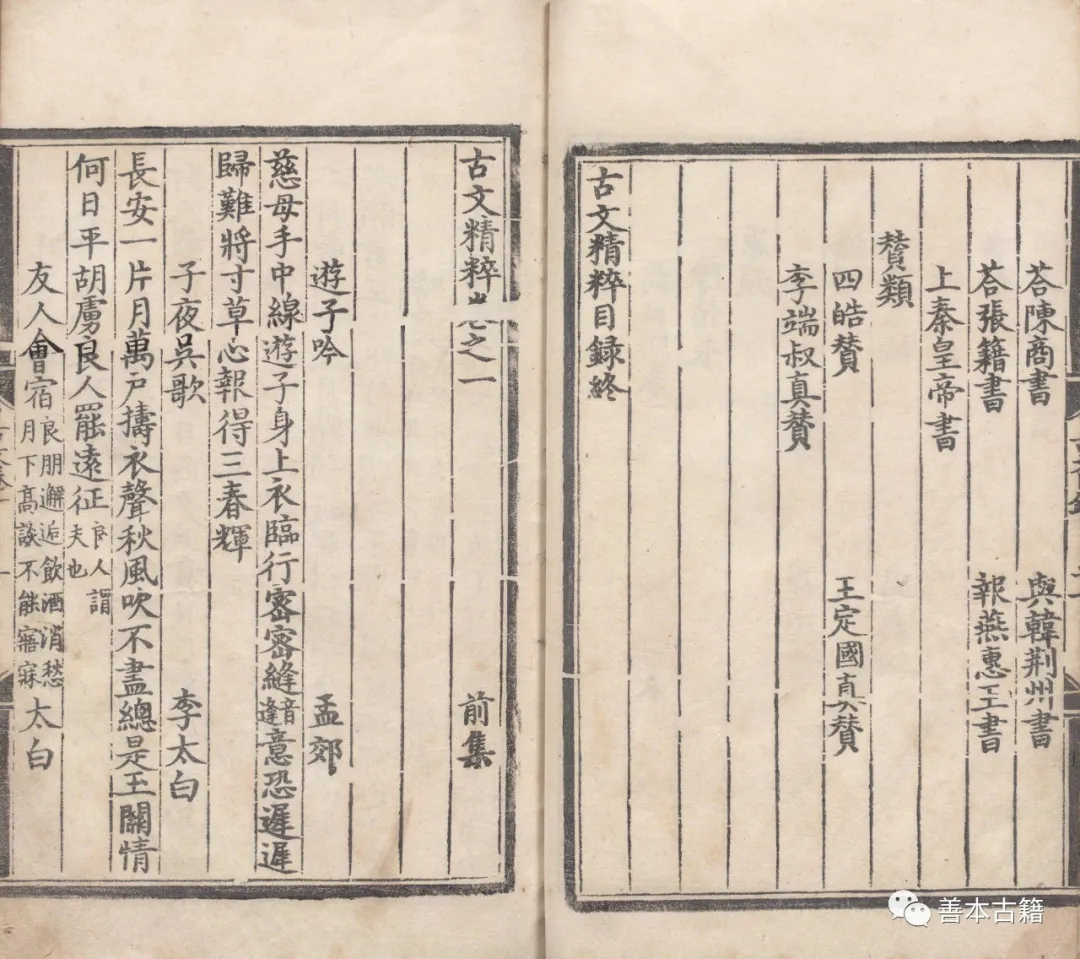 荅陳商書 與韓荆州書
荅張籍書 報燕惠王書
上秦皇帝書
賛類
四皓賛 王定國真賛
李端叔真賛
古文精粹目録終
古文精粹卷之一 前集
遊子吟 孟郊
慈母手中線遊子身上衣臨行密密縫音逢意恐遲遲
歸難將寸草心報得三春輝
子夜吳歌 李太白
長安一片月萬戸擣衣聲秋風吹不盡總是玉關情
何日平胡虜良人罷遠征良人謂夫也
友人會宿良朋邂逅飲酒消愁月下高談不能寤寐 太白
善本古籍